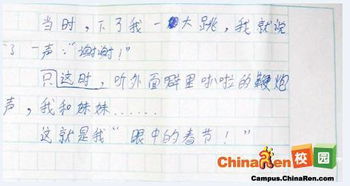 当时，下了我一大跳，我就说
了一声："谢谢！"
只这时，听外面噼里叭啦的鞭炮
声，我和妹妹……
这就是我"眼中的春节！"
ChinaRen校园
Campus.ChinaRen.com